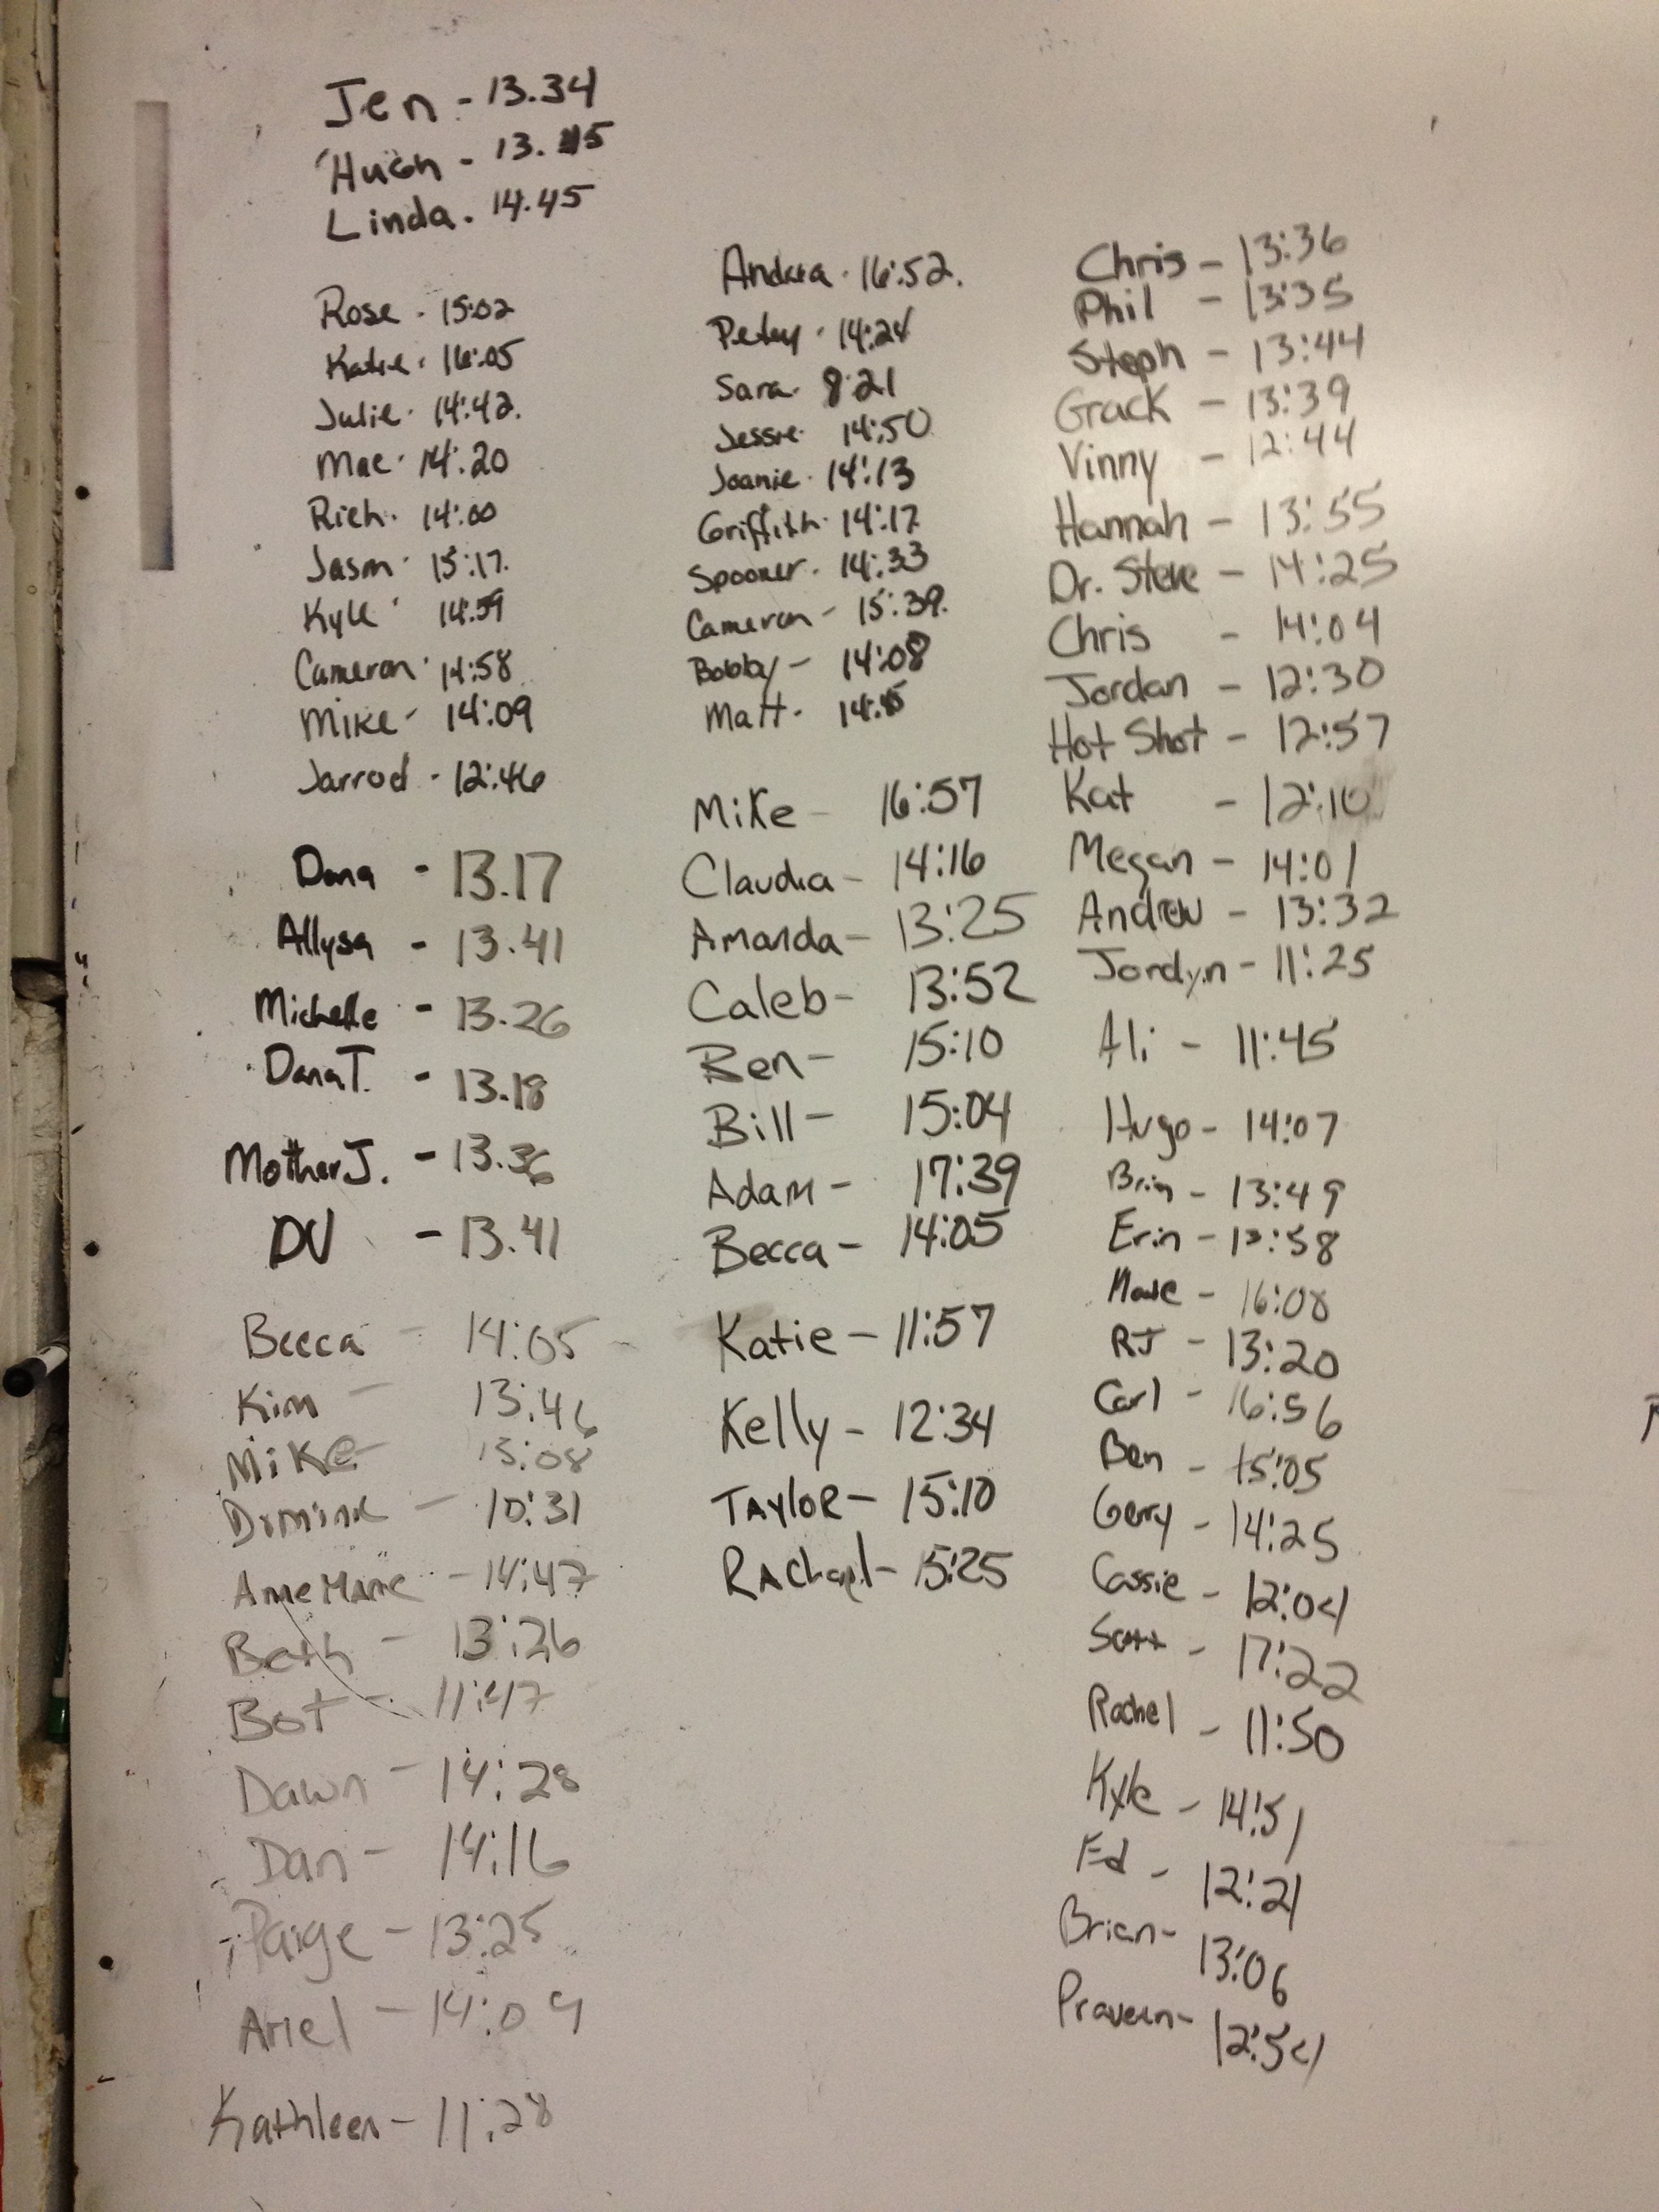 Jen - 13.34
Hugh - 13.45
Linda. 14.45
Rose - 15:02
Katie. 16:05
Julie. 14:42.
Mae. 14:20
Rich. 14:00
Jason. 15:17.
Kyle. 14:59
Cameron. 14:58
Mike - 14:09
Jarrod - 12:46
Dana - 13.17
Allysa - 13.41
Michelle - 13.26
Dana T. - 13.18
Mother J. - 13.36
DV - 13.41
Becca - 14:05
Kim - 13:46
Mike - 13:08
Dominic - 10:31
Anne Marie - 14:47
Beth - 13:26
Bot - 11:47
Dawn - 14:28
Dan - 14:16
Paige - 13:25
Ariel - 14:09
Kathleen - 11:28
Andrea. 16:52.
Petey. 14:24
Sara. 8:21
Jessie. 14:50
Joanie. 14:13
Griffith. 14:17
Spooner. 14:33
Cameron - 15:39.
Bobby - 14:08
Matt.
Mike - 16:57
Claudia - 14:16
Amanda - 13:25
Caleb - 13:52
Ben - 15:10
Bill - 15:04
Adam - 17:39
Becca - 14:05
Katie - 11:57
Kelly - 12:34
TAYlOR - 15:10
RAChael - 15:25
Chris - 13:36
Phil - 13:35
Steph - 13:44
Grack - 13:39
Vinny - 12:44
Hannah - 13:55
Dr. Steve - 14:25
Chris - 14:04
Jordan - 12:30
Hot Shot - 12:57
Kat - 12:10
Megan - 14:01
Andrew - 13:32
Jordyn - 11:25
Ali - 11:45
Hugo - 14:07
Brin - 13:49
Erin - 13:58
- 16:08
RJ - 13:20
Carl - 16:56
Ben - 15:05
Gerry - 14:25
Cassie - 12:04
Scott - 17:22
Rachel - 11:50
Kyle - 14:51
Ed - 12:21
Brian - 13:06
Praveen - 12:54